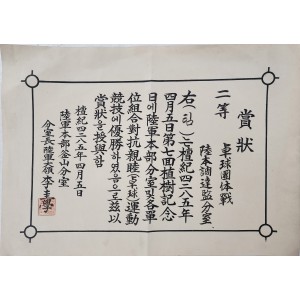 賞狀
二等
卓球團体戰
陸本調達監分室
右(은)는檀紀四二八五年
四月五日第七回植樹記念
日에陸軍本部分室및各單
位組合對抗親睦(卓球)運動
競技에優勝하였음으로玆以
賞狀을授與함
檀紀四二八五年四月五日
陸軍本部釜山分室
分室長陸軍大領李